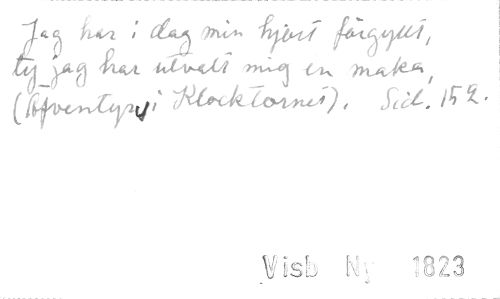 Jag har i dag min hjort förgyllt,
ty jag har utvalt mig en maka,
(Äfventyr i Klocktornet). Sid. 152.
Visb Ny 1823